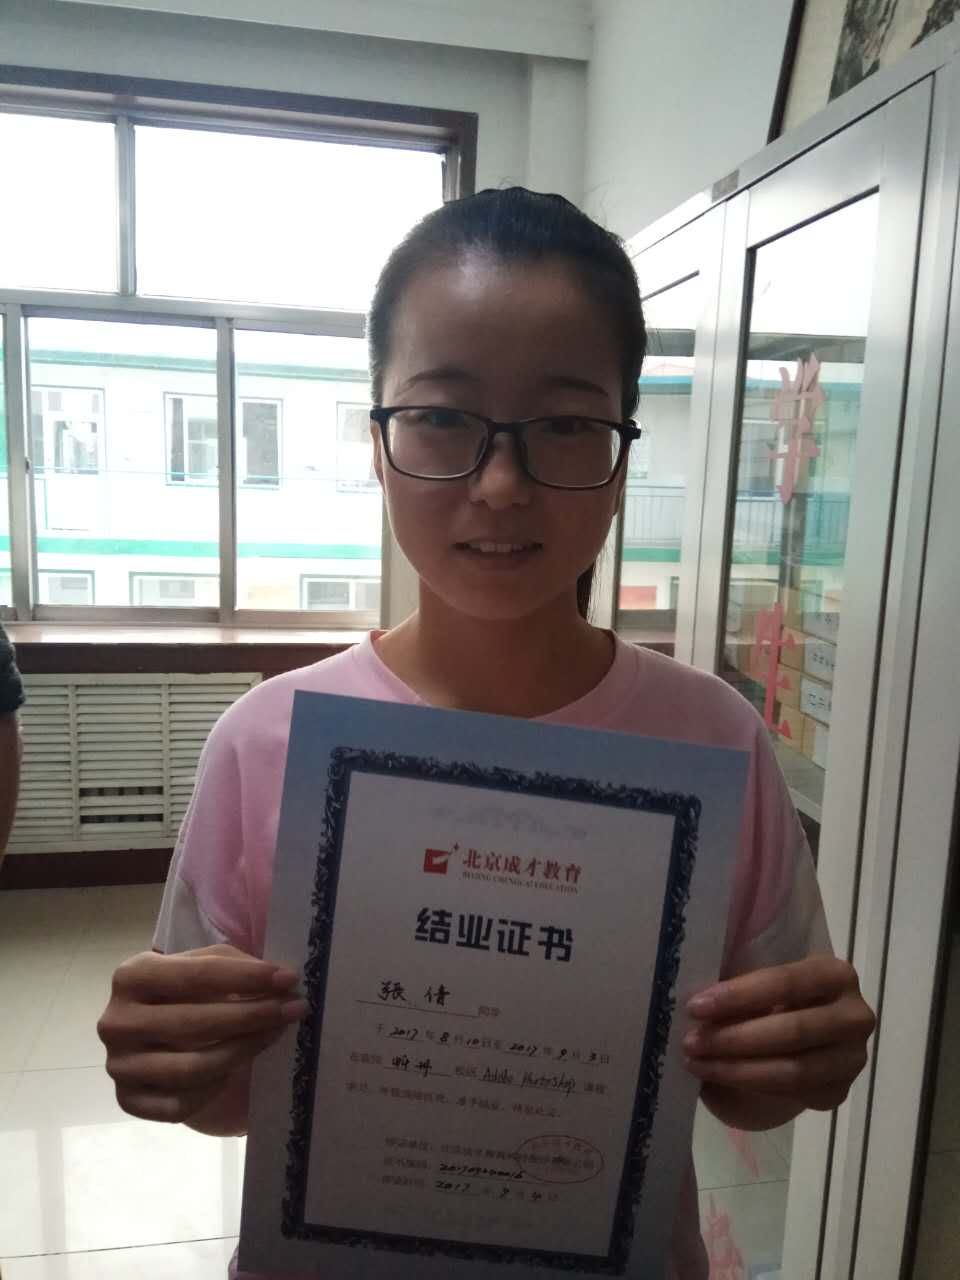 北京成才教育
BEIJING CHENGCAI EDUCATION
结业证书
張倩 同学
于 2017 年 8 月 10 日至 2017 年 9 月 3 日
在我校 校区 Adobe Photoshop 课程
学习，年级成绩优秀，准予结业，特发此证。
证书编码：
2017 年 9 月 4 日
学
生